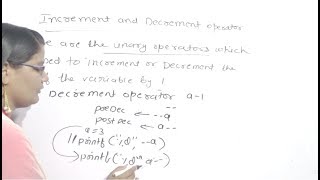 Increment and Decrement operator
e are the unary operators which
ed to increment or Decrement the
the variable by 1
Decrement operator a-1
preDec --
postDec --a
a--
a=3
printf("%d", --a)
printf("%d" a--)